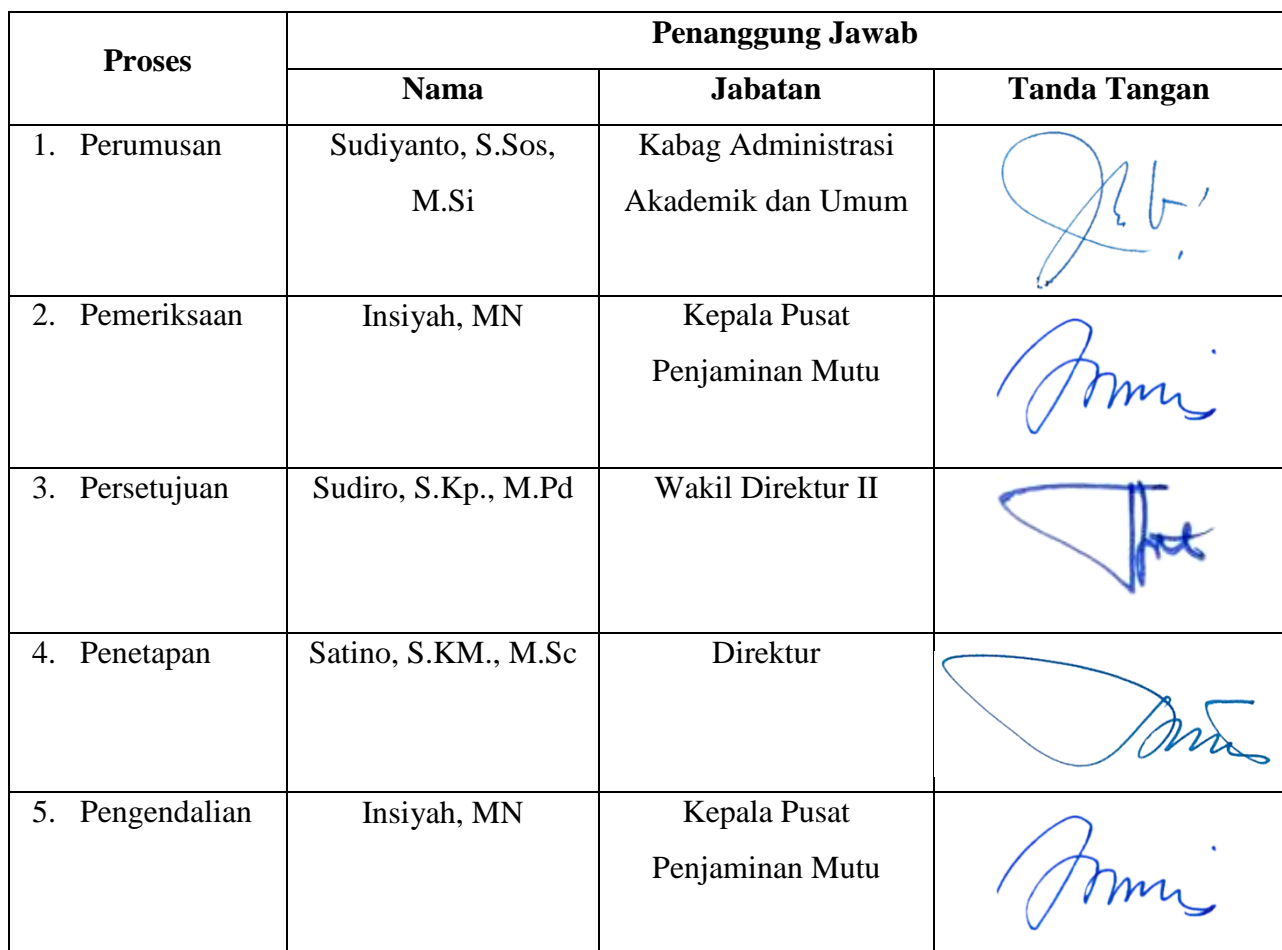 Proses
Penanggung Jawab
Nama
Jabatan
Tanda Tangan
1. Perumusan
Sudiyanto, S.Sos,
M.Si
Kabag Administrasi
Akademik dan Umum
2. Pemeriksaan
Insiyah, MN
Kepala Pusat
Penjaminan Mutu
3. Persetujuan
Sudiro, S.Kp., M.Pd
Wakil Direktur II
4. Penetapan
Satino, S.KM., M.Sc
Direktur
5. Pengendalian
Insiyah, MN
Kepala Pusat
Penjaminan Mutu